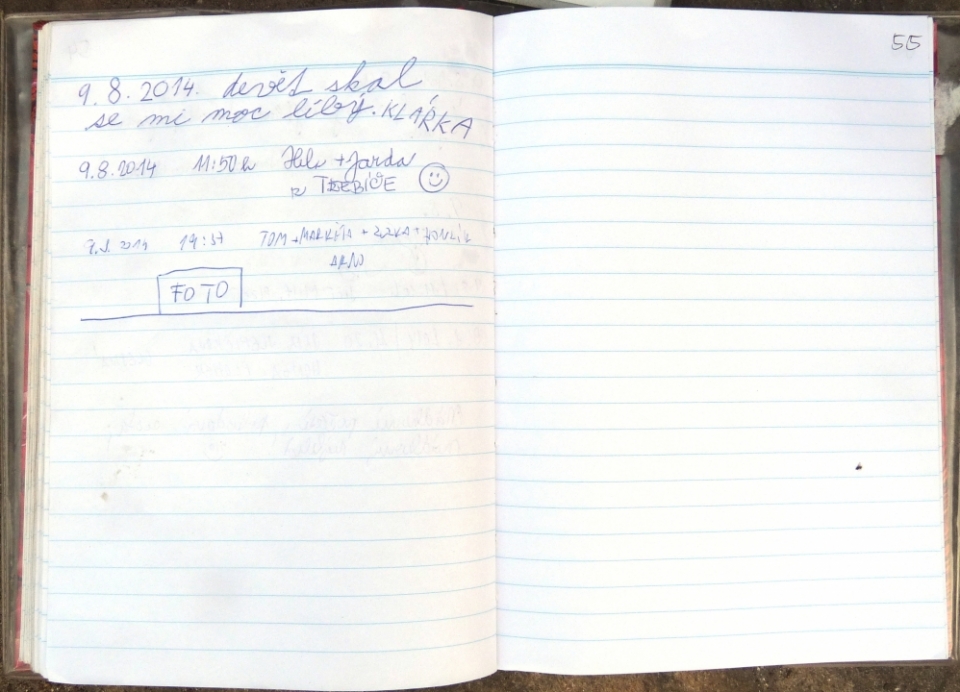 55
9. 8. 2014. devět skal
se mi moc líbý. KLÁRKA
9.8.2014 11:50h Hela + Jarda
z TŘEBÍČE
2014 14:37 TOM + MARKÉTA + ZUZKA + HONZÍK
FOTO